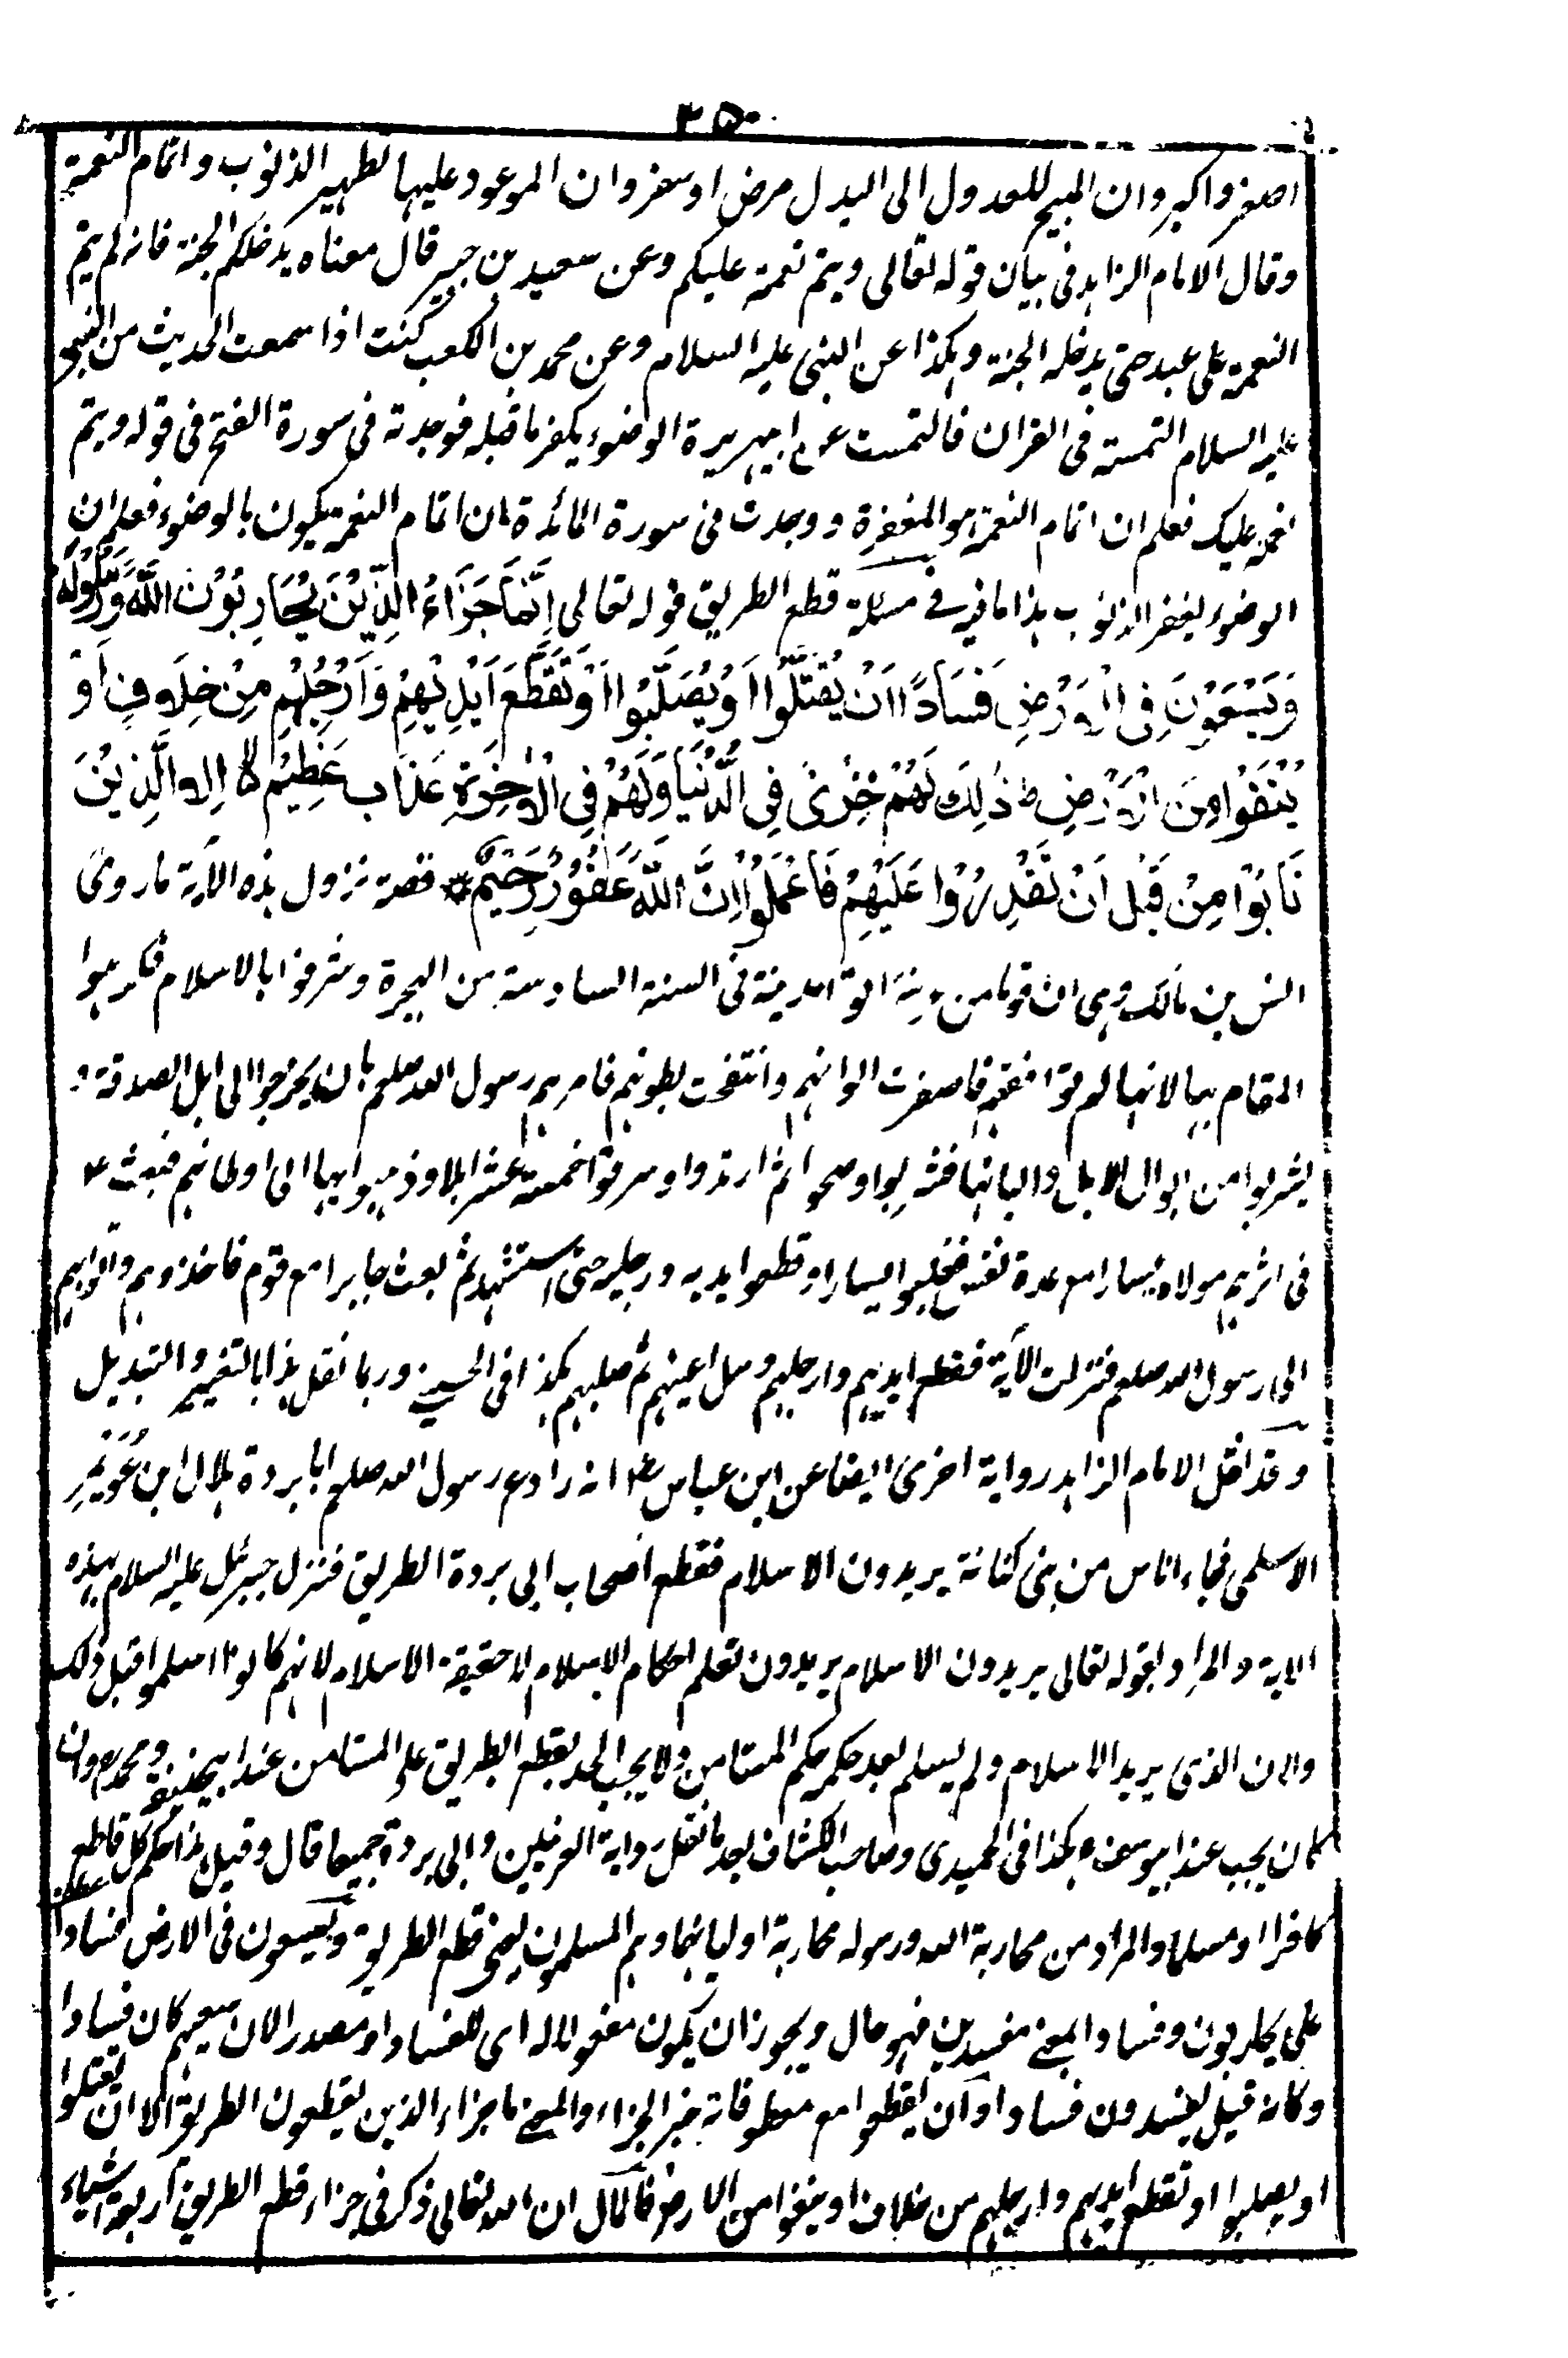 ٣٥٠
اصغر واكبر وان المبيح للعدول الى البدل مرض او سفر وان الموعود عليها لطهير الذنوب واتمام النعمة
وقال الامام الزاهد فى بيان قوله تعالى ويتم نعمته عليكم وعن سعيد بن جبير قال معناه يدخلكم الجنة فانه لم يتم
النعمة على عبد حتى يدخله الجنة وهكذا عن النبى عليه السلام وعن محمد بن الكعب كنت اذا سمعت الحديث من النبى
عليه السلام التمسته فى القران فالتمست عن ابيهريرة الوضوء يكفر ما قبله فوجدته فى سورة الفتح فى قوله ويتم
نعمته عليك فعلم ان اتمام النعمة هو المغفرة ووجدت فى سورة المائدة ان اتمام النعمة يكون بالوضوء فعلم ان
الوضوء يغفر الذنوب هذا ما فيه فى مسئلة قطع الطريق قوله تعالى اِنَّمَا جَزَاءُ الَّذِيْنَ يُحَارِبُوْنَ اللّٰهَ وَرَسُوْلَهُ
وَيَسْعَوْنَ فِى الْاَرْضِ فَسَادًا اَنْ يُقَتَّلُوْا اَوْ يُصَلَّبُوْا اَوْ تُقَطَّعَ اَيْدِيْهِمْ وَاَرْجُلُهُمْ مِنْ خِلَافٍ اَوْ
يُنْفَوْا مِنَ الْاَرْضِ ط ذٰلِكَ لَهُمْ خِزْىٌ فِى الدُّنْيَا وَلَهُمْ فِى الْاٰخِرَةِ عَذَابٌ عَظِيْمٌ لا اِلَّا الَّذِيْنَ
تَابُوْا مِنْ قَبْلِ اَنْ تَقْدِرُوْا عَلَيْهِمْ فَاعْلَمُوْا اِنَّ اللّٰهَ غَفُوْرٌ رَحِيْمٌ * قصة نزول هذه الآية ما روى
انس بن مالك وهى ان قوما من عرينة اتوا المدينة فى السنة السادسة من الهجرة وشرفوا بالاسلام فكرهوا
المقام بها لانها لم توافقهم فاصفرت الوانهم وانتفخت بطونهم فامرهم رسول الله صلعم بان يخرجوا الى ابل الصدقة و
يشربوا من ابوال الابل والبانها فشربوا وصحوا ثم ارتدوا وسرقوا خمسة عشر ابلا وذهبوا بها الى اوطانهم فبعث ع
فى اثرهم مولاه يسارا مع عدة نفر فغلبوا يسارا وقطعوا يديه ورجليه حتى استشهد ثم بعث جابرا مع قوم فاخذوهم واتوا بهم
الى رسول الله صلعم فنزلت الآية فقطع ايديهم وارجلهم وسمل اعينهم ثم صلبهم هكذا فى الحسينى وربما نقل هذا بالتغيير والتبديل
وقد نقل الامام الزاهد رواية اخرى ايضا عن ابن عباس رض انه وادع رسول الله صلعم ابا بردة هلال ابن عُوَيْمِرِ
الاسلمى فجاء اناس من بنى كنانة يريدون الاسلام فقطع اصحاب ابى بردة الطريق فنزل جبرئيل عليه السلام بهذه
الاية والمراد بقوله تعالى يريدون الاسلام يريدون تعلم احكام الاسلام لا حقيقة الاسلام لانهم كانوا اسلموا قبل ذلك
والا ن الذى يريد الاسلام ولم يسلم بعد حكمه حكم المستامن ولا يجب الحد بقطع الطريق على المستامن عند ابيحنيفة ومحمد وان
كان يجب عند ابيوسف هكذا فى الحميدى وصاحب الكشاف بعد ما نقل رواية العرنيين وابى بردة جميعا قال وقيل هذا حكم كل قاطع
كافرا او مسلما والمراد من محاربة الله ورسوله محاربة اوليائهما وهم المسلمون يعنى قطع الطريق ويسعون فى الارض فسادا عطف
على يحاربون وفسادا بمعنى مفسدين فهو حال ويجوز ان يكون مفعولا له اى للفساد او مصدرا لان سعيهم كان فسادا
وكانه قيل يفسدون فسادا وان يقطعوا مع معطوفاته خبر الجزاء والمعنى ما جزاء الذين يقطعون الطريق الا ان يقتلوا
او يصلبوا او تقطع ايديهم وارجلهم من خلاف او ينفوا من الارض فالمآل ان الله تعالى ذكر فى جزاء قطع الطريق اربعة اشياء